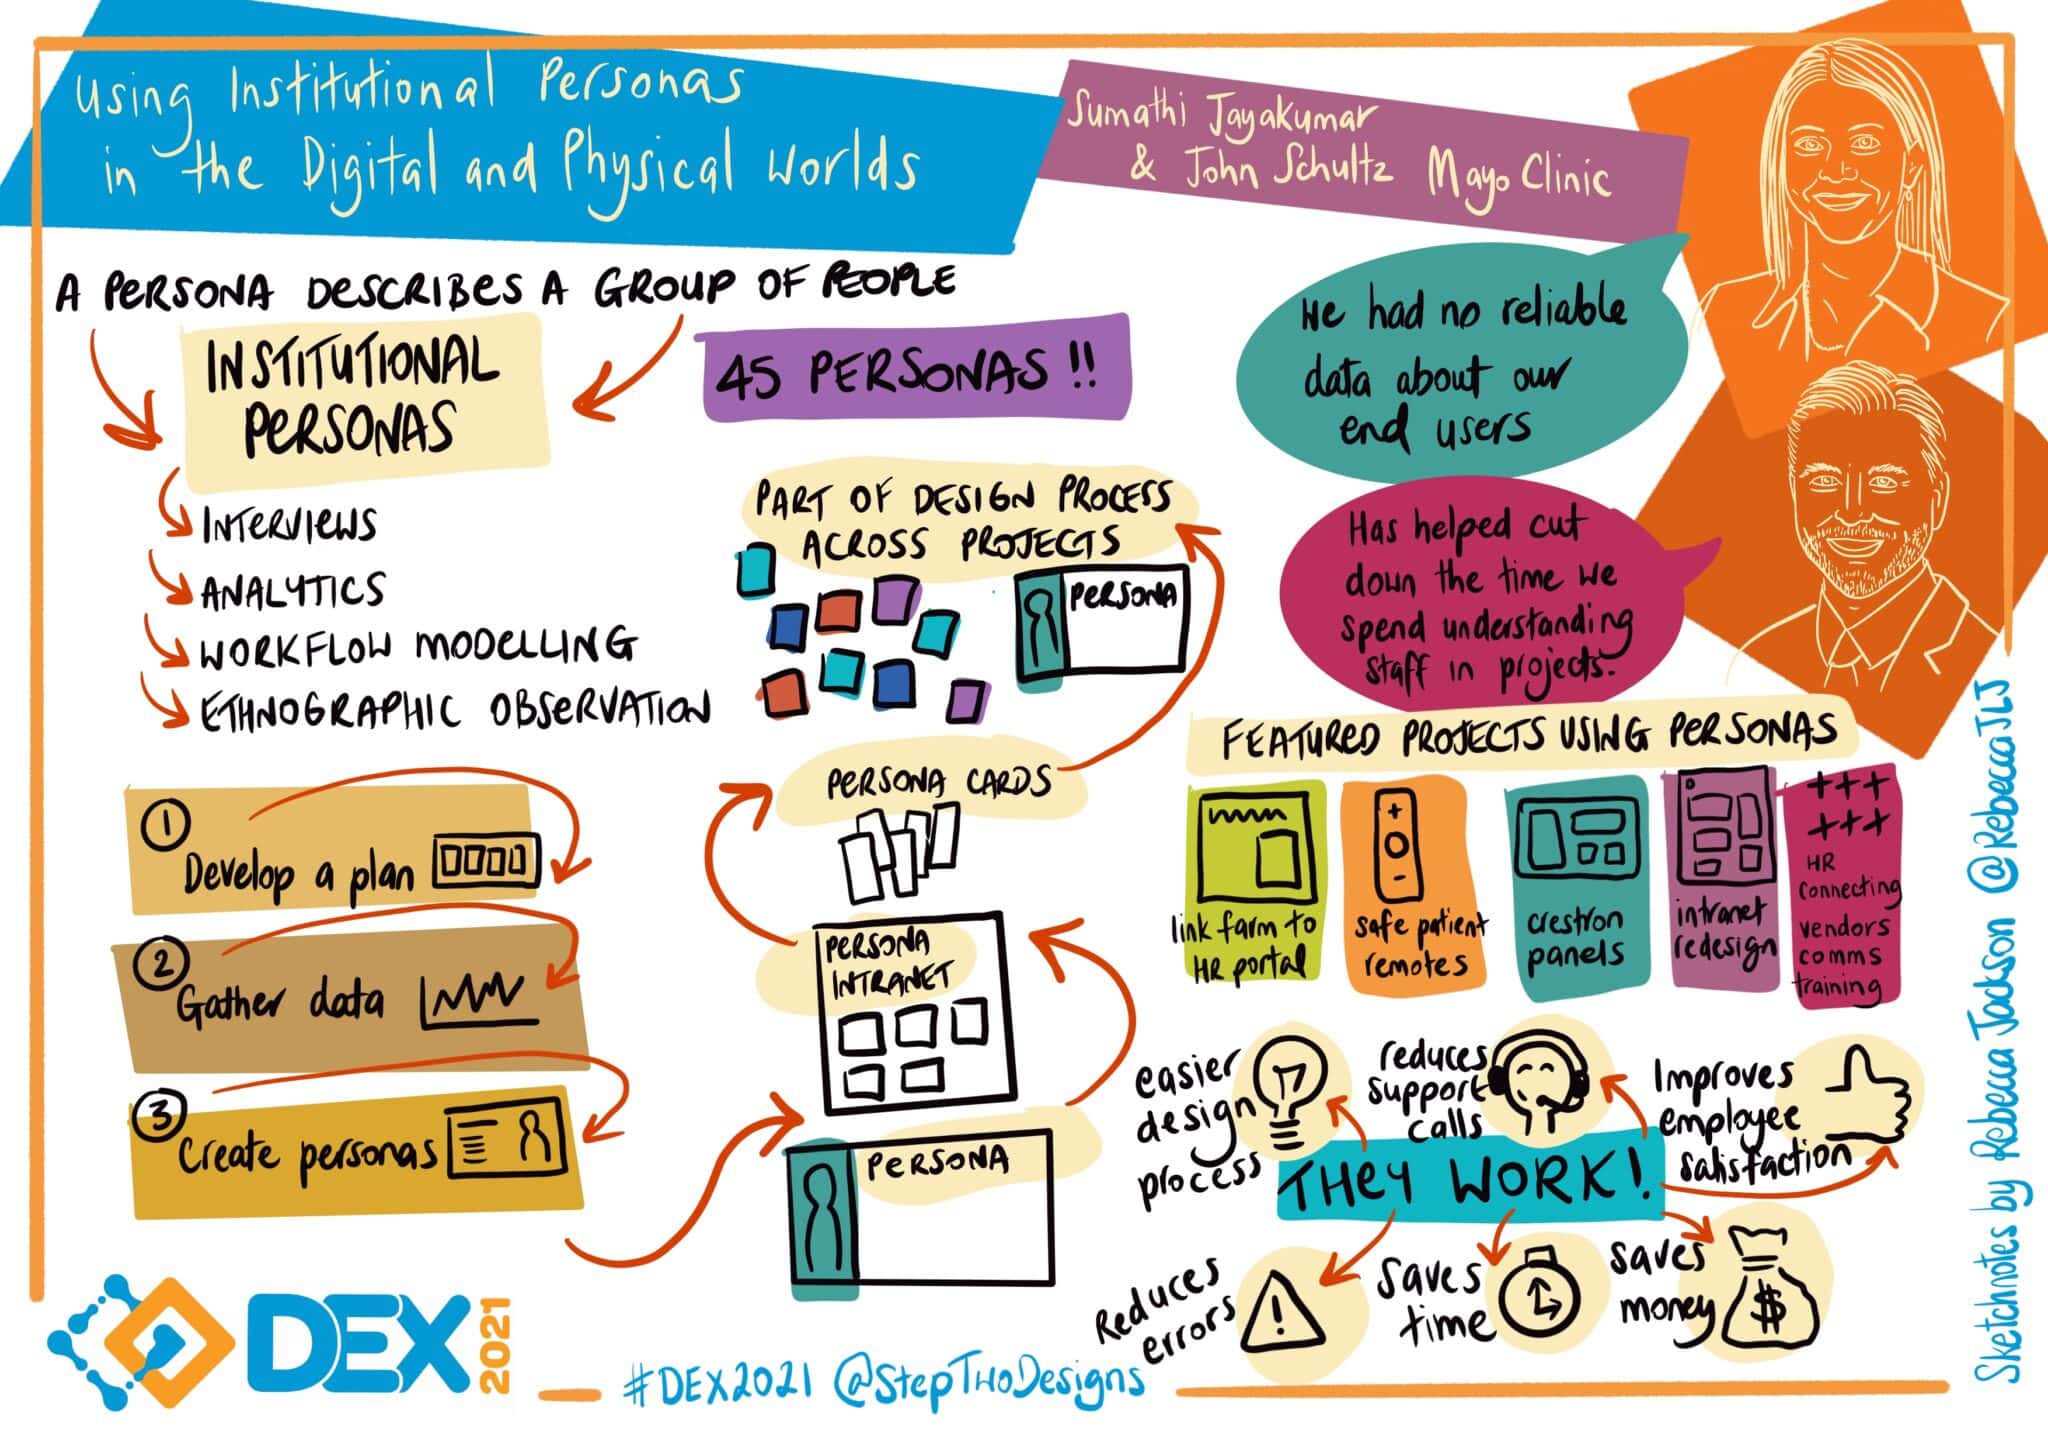 Using Institutional Personas
in the Digital and Physical Worlds
Sumathi Jayakumar
& John Schultz Mayo Clinic
A PERSONA DESCRIBES A GROUP OF PEOPLE
INSTITUTIONAL
PERSONAS
INTERVIEWS
ANALYTICS
WORKFLOW MODELLING
ETHNOGRAPHIC OBSERVATION
1
Develop a plan
2
Gather data
3
Create personas
45 PERSONAS!!
PART OF DESIGN PROCESS
ACROSS PROJECTS
PERSONA
PERSONA CARDS
PERSONA
INTRANET
PERSONA
We had no reliable
data about our
end users
Has helped cut
down the time we
spend understanding
staff in projects.
FEATURED PROJECTS USING PERSONAS
link farm to
HR portal
safe patient
remotes
crestron
panels
intranet
redesign
+++
+++
HR
connecting
vendors
comms
training
easier
design
process
reduces
support
calls
Improves
employee
satisfaction
THEY WORK!
Reduces
errors
Saves
time
Saves
money
$
DEX
2021
#DEX2021 @StepTwoDesigns
Sketchnotes by Rebecca Jackson @RebeccaJLJ